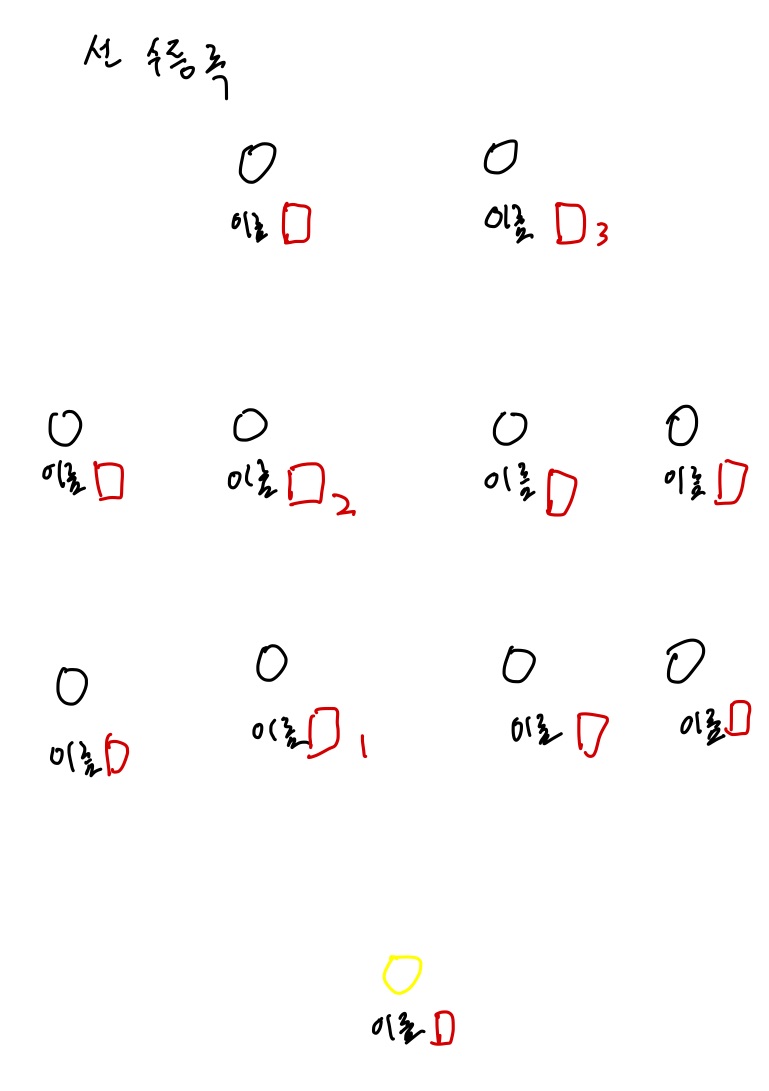 선 수등록
이름 이름 3
이름 이름 2 이름 이름
이름 이름 1 이름 이름
이름